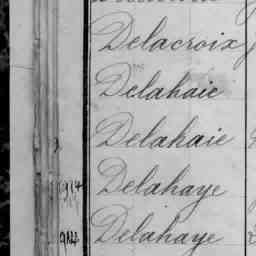 Delacroix
Delahaie
Delahaie
Delahaye
Delahaye